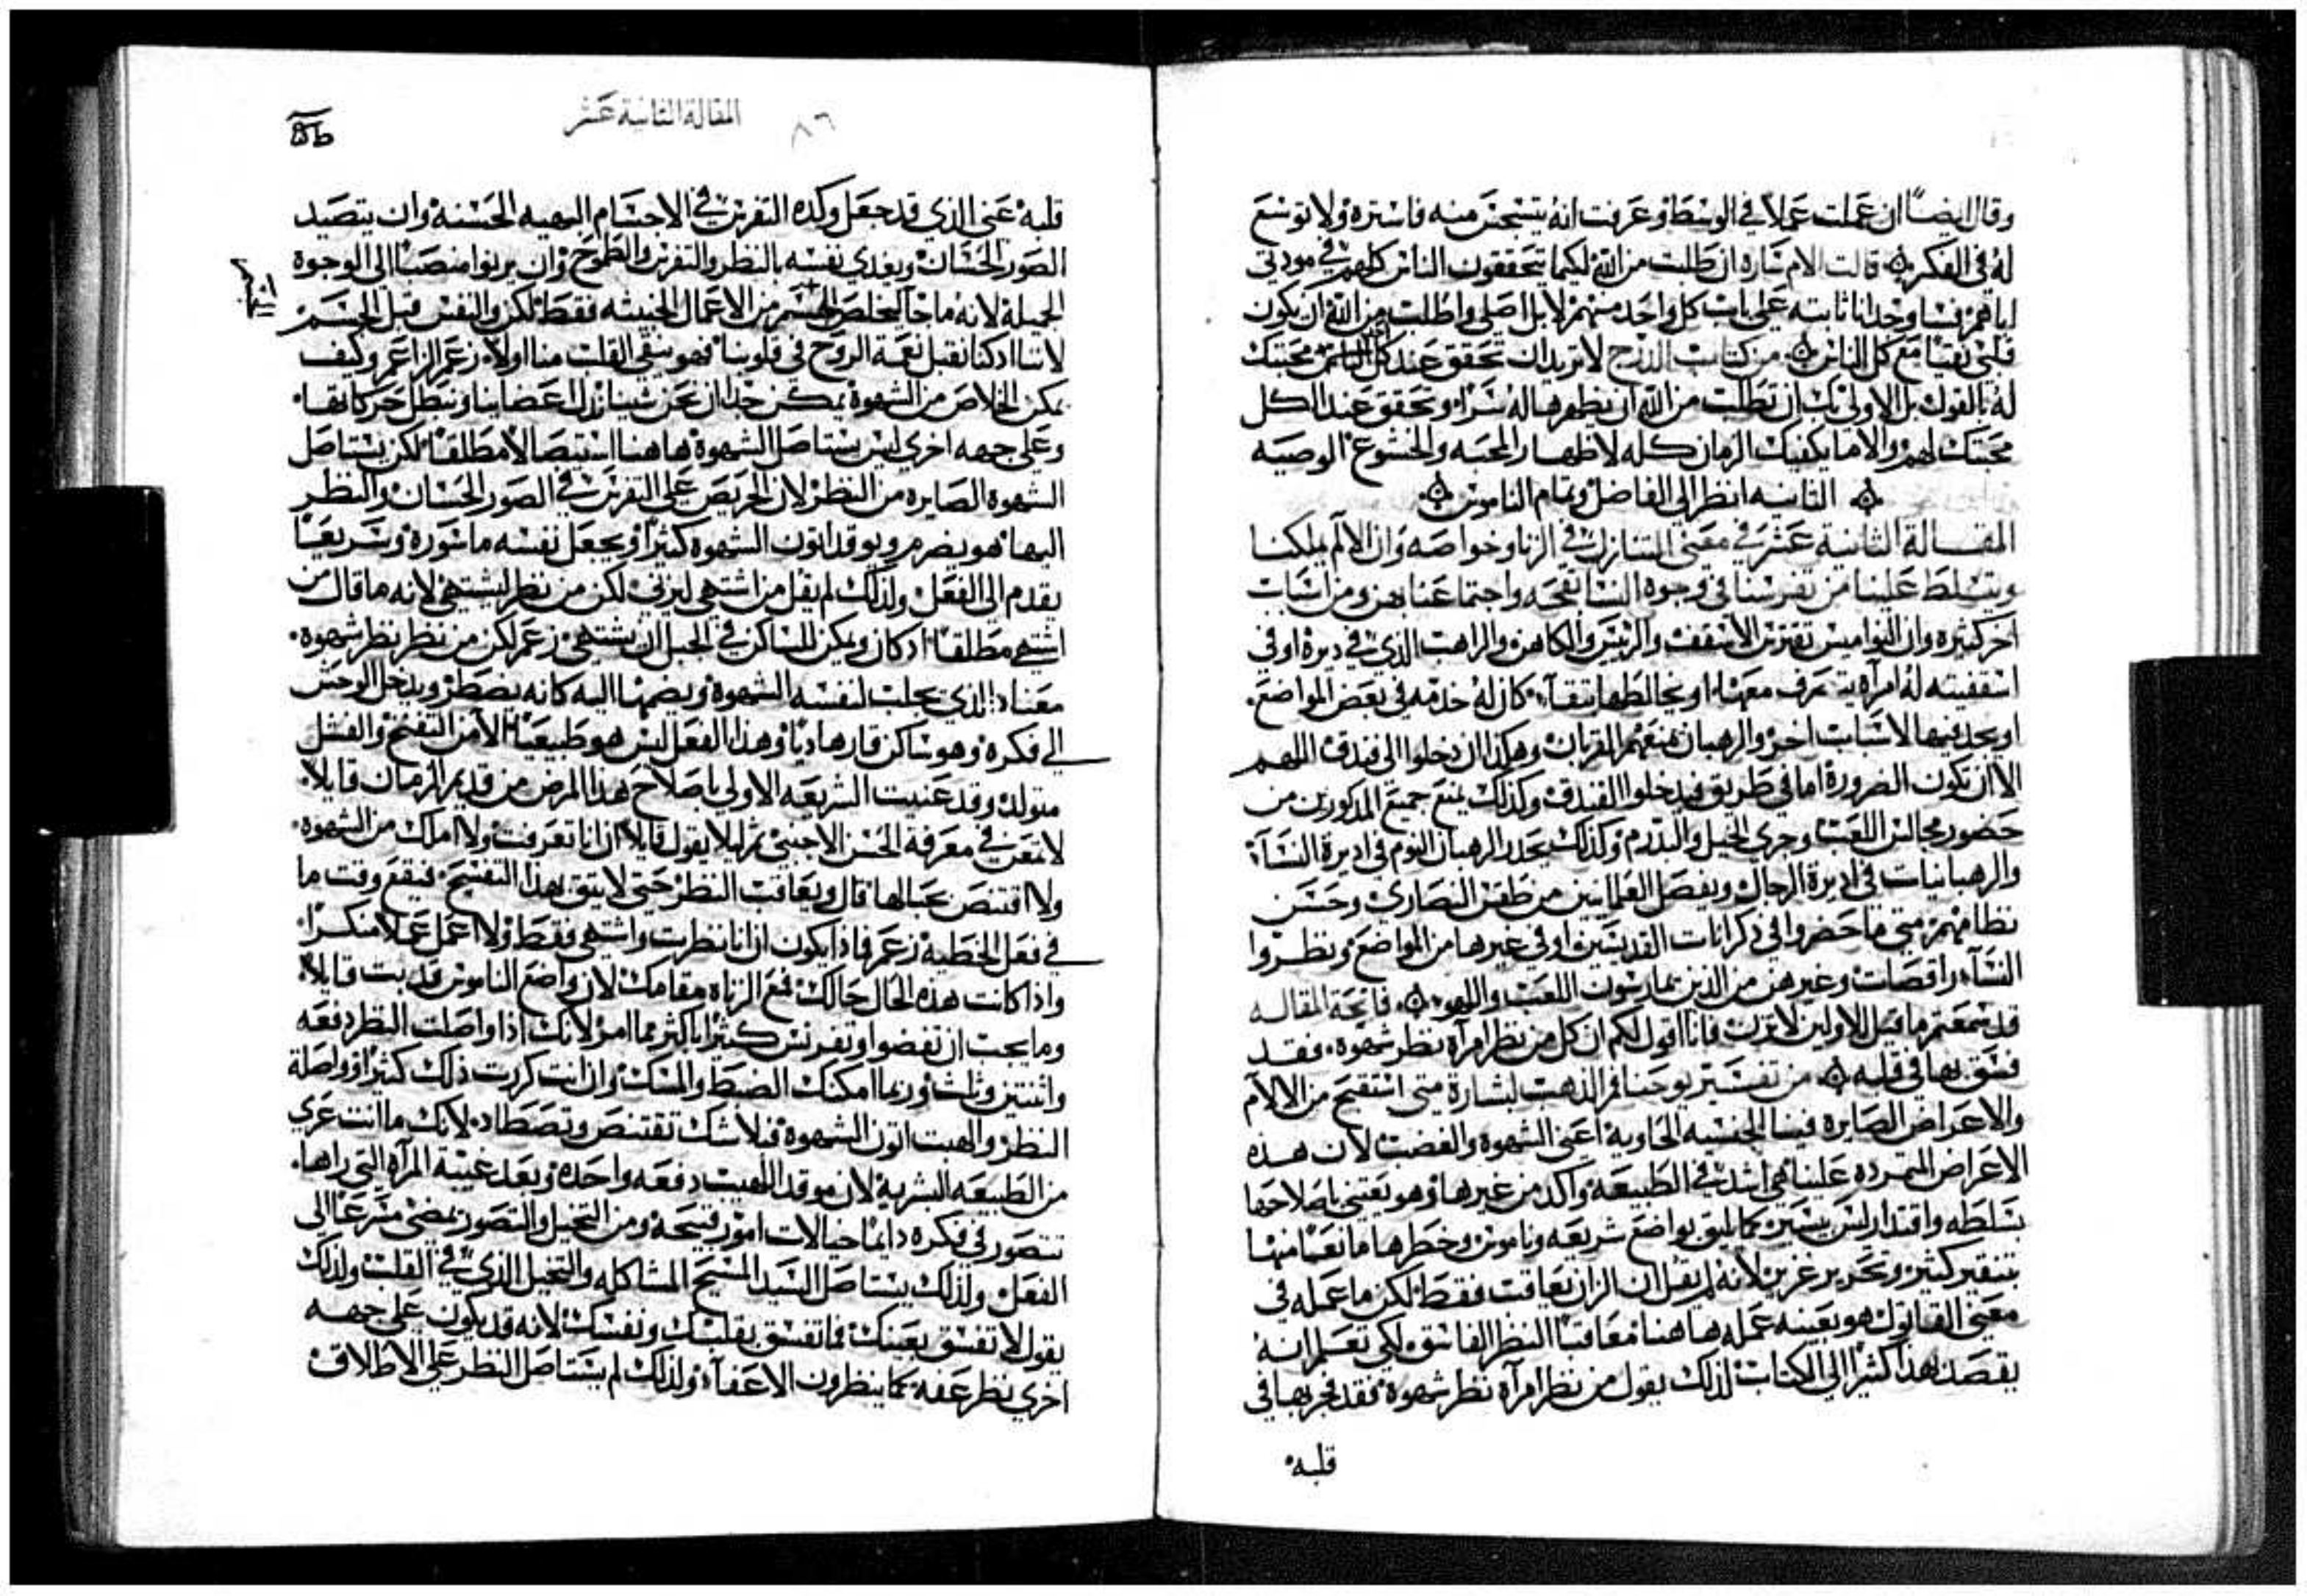 وقال ايضًا ان عملت عملاً في الوسط وعرفت انه يتسجن منه فاستره ولا توسع
له في الفكر قالت الام ساره ان طلبت من الله لكيما يتحققون الناس كلهم في مودتي
فلبي نقيا مع كل الناس من كتاب الدرج لا تريد ان تحقق عند كل الناس محبتك
له بالقول بل الاولى بك ان تطلب من الله ان يظهر هاله سرًا وتحقق عند الكل
محبتك لهم والا ما يكفيك الزمان كله لاظهار المحبه والخشوع الوصيه
الثانيه انظر الى الفاضل وتمام الناموس
المقالة الثانية عشر في معنى المتنازل في الزنا وخواصه وان الالم يملكنا
ويتسلط علينا من تفرسنا في وجوه النسا بقحه واجتماعنا بهن ومن اسباب
اخر كثيره وان النواميس تفترن الاسقف والريس والكاهن والراهب الذي في ديره او في
اسقفيته له امرآه يتصرف معها او يخالطها بتقآ كان له خدمه في بعض المواضع
او يجد فيها لاسباب اخر والرهبان تمنعهم القربان وهكذا ان دخلوا الى فندق اللهم
الا ان تكون الضرورة اما في طريق فيدخلوا الفندق وكذلك يمنع جميع المذكورين من
حضور مجالس اللعب وجري الخيل والبدرم وكذلك يحدد الرهبان النوم في اديرة النسآ
والرهبانيات في اديرة الرجال ويفصل العلمانيين من طقس النصارى وحسن
نظامهم متى ما حضروا في ذكرانات القديسين او في غيرها من المواضع ونظروا
النسآء راقصات وغيرهن من الذين يمارسون اللعب واللهو فاتحة المقاله
قد سمعتم ما قيل للاولين لا تزن فانا اقول لكم ان كل من نظر امرآه نظر شهوة فقد
فسق بها في قلبه من تفسير يوحنا فم الذهب لبشارة متى استقبح من الالام
والاعراض الصايره فينا الجنسيه الحاويه اعني الشهوة والغضب لان هذه
الاعراض المتمرده علينا هي اشد في الطبيعه واكد من غيرها وهو يعتني باصلاحها
بسلطه واقتدار ليس يسير كما يليق بواضع شريعه وناموس وخطرها مانعًا منها
بتنقير كثير وتحرير غزير لانه لم يقل ان الزان يعاقب فقط لكن ما عمله في
معنى القاتول هو بعينه عمله ها هنا معاقبًا النظر الفاسق لكي تعلم انه
يقصد بهذا كثيرًا الى الكتاب لذلك يقول من نظر امرآه نظر شهوة فقد فجر بها في
قلبه
المقالة الثانية عشر
٨٦
قلبه عنى الذي قد جعل وكده التفرس في الاجسام البهيه الحسنه وان يتصيد
الصور الحسان ويغدي نفسه بالنظر والتفرس والطموح وان يرنوا منصبًا الى الوجوه
الجميلة لانه ما جآ ليخلص الجسم من الاعمال الخبيثه فقط لكن والنفس قبل الجسم
لاننا اذ كنا نقبل نعمة الروح في قلوبنا فهو ينقي القلب منا اولاً زعم الزاعم وكيف
يمكن الخلاص من الشهوة يمكن جدا ان نحن شيئا زلل اعضاينا ونبطل حركاتها
وعلى جهه اخرى ليس يستاصل الشهوة ها هنا استيصالاً مطلقًا لكن يستاصل
الشهوة الصايره من النظر لان الحريص على التفرس في الصور الحسان والنظر
اليها هو يضرم ويوقد اتون الشهوه كثيرًا ويجعل نفسه ماسورة وسريعًا
يقدم الى الفعل ولذلك لم يقل من اشتهى ليزني لكن من نظر ليشتهي لانه ما قال من
اشتهى مطلقًا اذ كان ويمكن للساكن في الجبل ان يشتهي زعم لكن من نظر نظر شهوة
معناه الذي يجلب لنفسه الشهوة ويضمها اليه كانه يضطر ويدخل الوحش
الى فكره وهو ساكن قار هاديًا وهذا الفعل ليس هو طبيعيًا لا من التفنخ والفشل
متولد وقد عنيت الشريعه الاولى باصلاح هذا المرض من قديم الزمان قايلاً
لا تمعن في معرفة الحسن الاجنبي ثم ليلا يقول قايلاً ان انا تعرفت ولا املك من الشهوه
ولا اقتنص بحبالها قال ويعاقب النظر حتى لا يتق بهذا التفسح فيقع وقت ما
في فعل الخطيه زعم فاذا يكون ان انا نظرت واشتهي فقط ولا اعمل عملاً منكرًا
واذا كانت هذه الحال حالك فمع الزناه مقامك لان واضع الناموس قد بت قايلاً
وما يجب ان تفضوا وتفرس كثيرًا باكثر مما امر لانك اذا واصلت النظر دفعه
واثنتين وثلث وربما امكنك الضبط والمسك وان انت كررت ذلك كثيرًا وواصلة
النظر والهبت اتون الشهوة فبلا شك تقتنص وتصطاد لانك ما انت عرى
من الطبيعه البشرية لان موقد اللهيب دفعه واحده وبعد غيبة المرآه التي راها
تتصور في فكره دايمًا خيالات امور قبيحه ومن التخيل والتصور يمضي مسرعًا الى
الفعل ولذلك يستاصل السيد المسيح المشاكله والتخيل الذي في القلب ولذلك
يقول لا تفسق بعينك فما تفسق بقلبك ونفسك لانه قد يكون على جهه
اخرى نظر عفه كما ينظرون الاعفآء ولذلك لم يستاصل النظر على الاطلاق